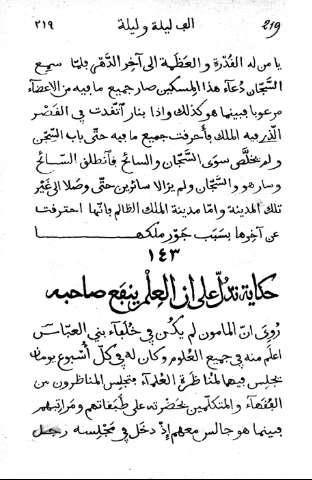 ٢١٩ الف ليلة وليلة 219
يا من له القدرة والعظمة الى آخر الدهر فلما سمع
السجّان دعاء هذا المسكين صار جميع ما فيه من الاعضاء
مرعوبا فبينما هو كذلك واذا بنار اتقدت في القصر
الذي فيه الملك فأحرقت جميع ما فيه حتّى باب السجن
ولم يخلص سوى السجّان والسائح فأنطلق السائح
وسار هو والسجّان ولم يزالا سائرين حتّى وصلا الى غير
تلك المدينة وامّا مدينة الملك الظالم فانّها احترقت
عن آخرها بسبب جور ملكها
١٤٣
حكاية تدلّ على ان العلم ينفع صاحبه
روى انّ المامون لم يكن في خلفاء بني العباس
اعلم منه في جميع العلوم وكان له في كلّ أسبوع يومان
يجلس فيهما لمناظرة العلماء فتجلس المناظرون من
الفقهاء والمتكلمين بحضرته على طبقاتهم ومراتبهم
فبينما هو جالس معهم إذ دخل في مجلسه رجل